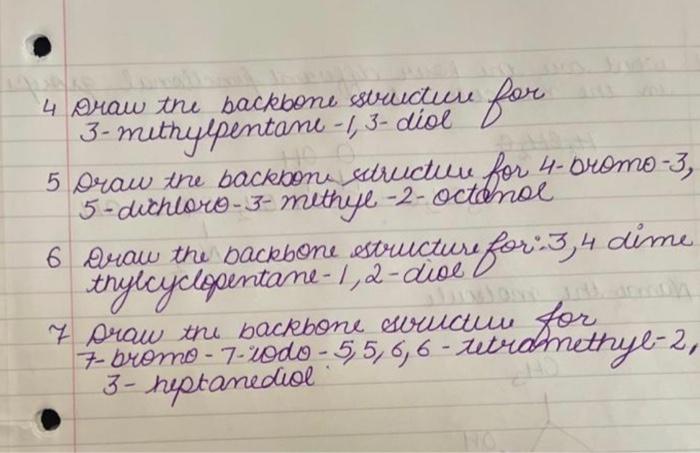 4 Draw the backbone structure for
3-methylpentane-1,3-diol
5 Draw the backbone structure for 4-bromo-3,
5-dichloro-3-methyl-2-octanol
6 Draw the backbone structure for: 3,4 dime
thylcyclopentane-1,2-diol
7 Draw the backbone structure for
7-bromo-7-iodo-5,5,6,6-tetramethyl-2,
3-heptanediol